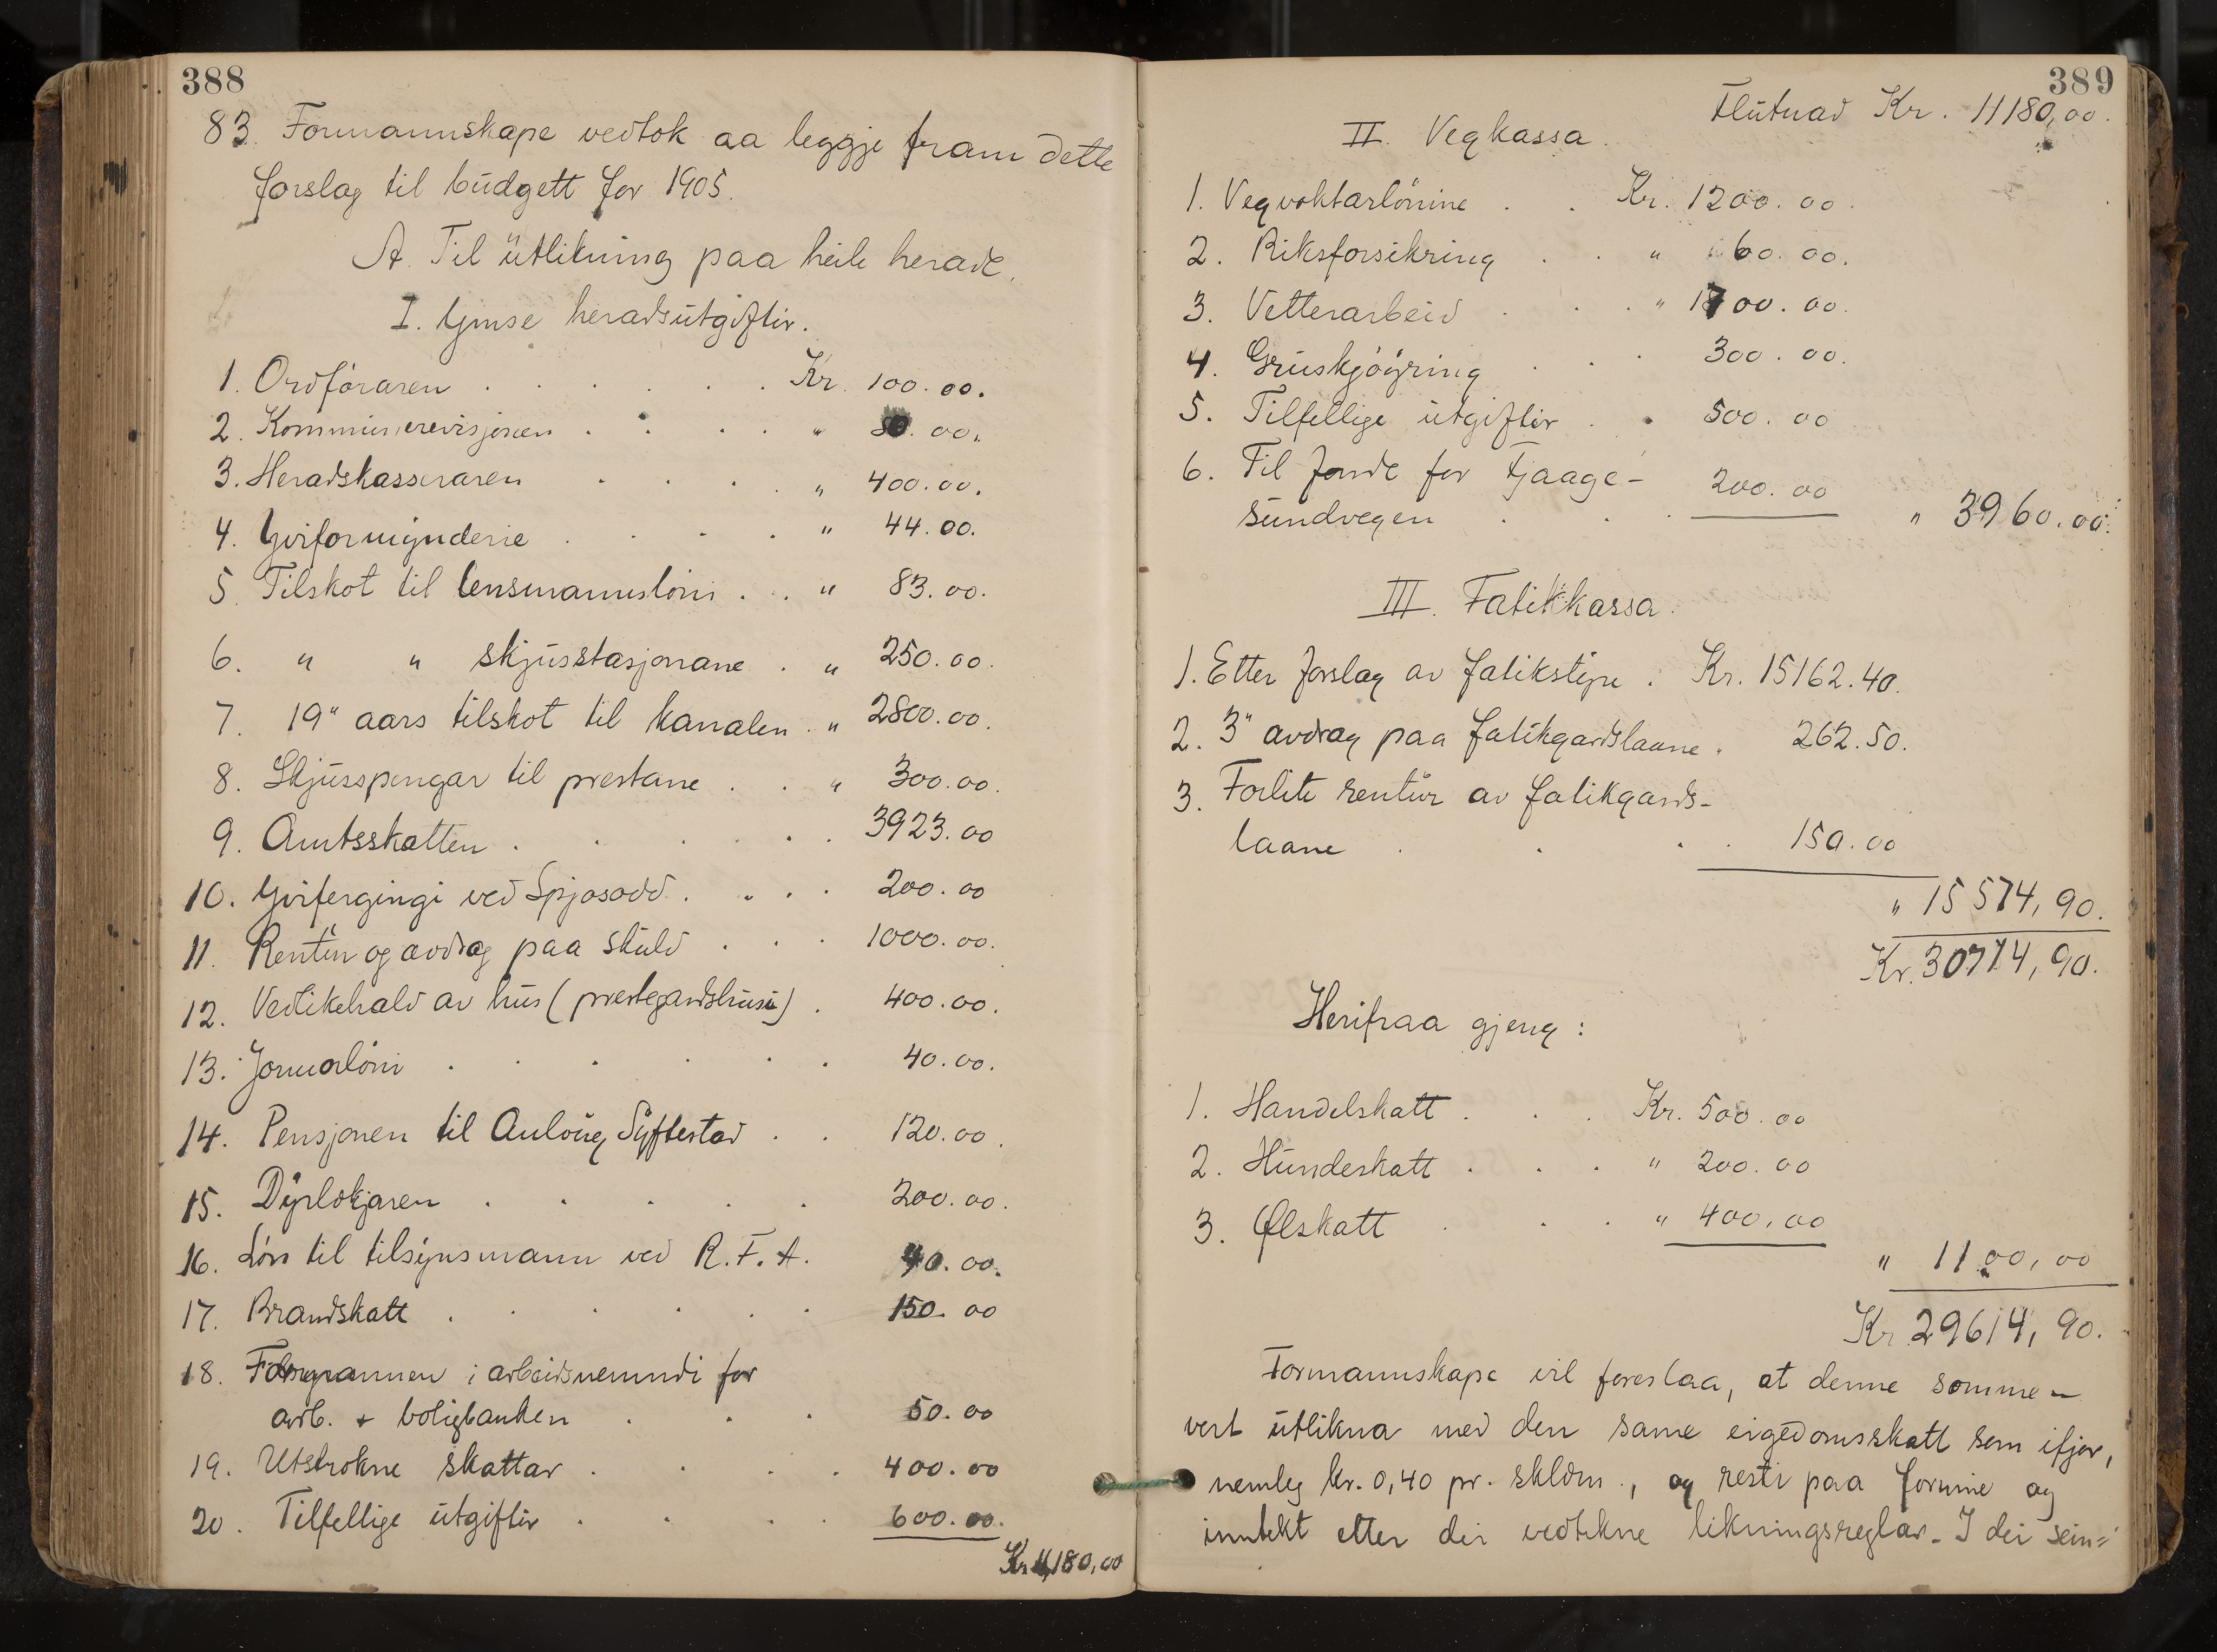 388
83. Formannskape vedtok aa leggje fram dette
forslag til budgett for 1905.
A. Til utlikning paa heile herade.
I. Ymse heradsutgifter.
1. Ordføraren . . . . . . Kr. 100.00.
2. Kommunerevisjonen . . . . " 80.00.
3. Heradskasseraren . . . . " 400.00.
4. Yviformynderie . . . . " 44.00.
5. Tilskot til lensmannsløni . . " 83.00.
6. " " skjusstasjonane . " 250.00.
7. 19" aars tilskot til kanalen . " 2800.00.
8. Skjusspengar til prestane . . " 300.00.
9. Amtsskatten . . . . . . 3923.00
10. Yvifergingi ved Spjosodd . . . 200.00
11. Rentur og avdrag paa skuld . . . 1000.00.
12. Vedlikehald av hus (prestegardshusi) . 400.00.
13. Jormorløni . . . . . 40.00.
14. Pensjonen til Aulaug Syftestad . . 120.00.
15. Dyrlækjaren . . . . . 200.00.
16. Løn til tilsynsmann ved R.F.A. 40.00.
17. Brandskatt . . . . . 150.00
18. Formannen i arbeidsnemndi for
arb. + boligbanken . . . 50.00
19. Utstrokne skattar . . . . 400.00
20. Tilfellige utgifter . . . . 600.00.
Kr. 11,180,00
389
Flutnad Kr. 11180,00.
II. Vegkassa.
1. Vegvoktarlønine . . Kr. 1200.00.
2. Riksforsikring . . " 60.00.
3. Vetterarbeid . . . " 1700.00.
4. Gruskjøyring . . 300.00.
5. Tilfellige utgifter . . 500.00
6. Til fonde for Fjaage-
sundvegen . . . 200.00 " 3960.00.
III. Fatikkassa.
1. Etter forslag av fatikstyre . Kr. 15162.40.
2. 3" avdrag paa fatikgardslaane " 262.50.
3. Forlite rentur av fatikgards-
laane . . . . 150.00
" 15574,90.
Kr. 30714,90.
Herifraa gjeng:
1. Handelskatt . . . Kr. 500.00
2. Hundeskatt . . . " 200.00
3. Ølskatt . . . " 400,00
" 1100,00
Kr. 29614,90.
Formannskape vil foreslaa, at denne summen
vert utlikna med den same eigedomsskatt som ifjor,
nemleg kr. 0,40 pr. skldm., og resti paa formue og
inntekt etter dei vedtekne likningsreglar. I dei sein-